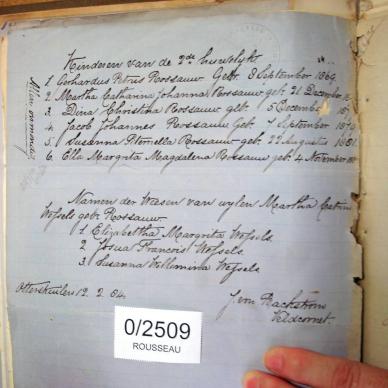 Kinderen van de 2de huwelijk
1 Gerhardus Petrus Rossauw Gebr. 8 September 1869
2 Martha Catharina Johanna Rossauw geb. 21 December
3 Dina Christina Rossauw geb 5 December
4 Jacob Johannes Rossauw Geb. 7 September 1879
5 Susanna Petronella Rossauw geb. 22 Augustus 1881
6 Ella Margrita Magdalena Rossauw geb 4 November
Namen der Weesen van wylen Martha
Wessels gebr Rossauw
1 Elizabettha Margrita Wessels
2 Josua Francois Wessels
3 Susanna Willumina Wessels
12. 2. 84.
Veldcornet.
0/2509
ROUSSEAU